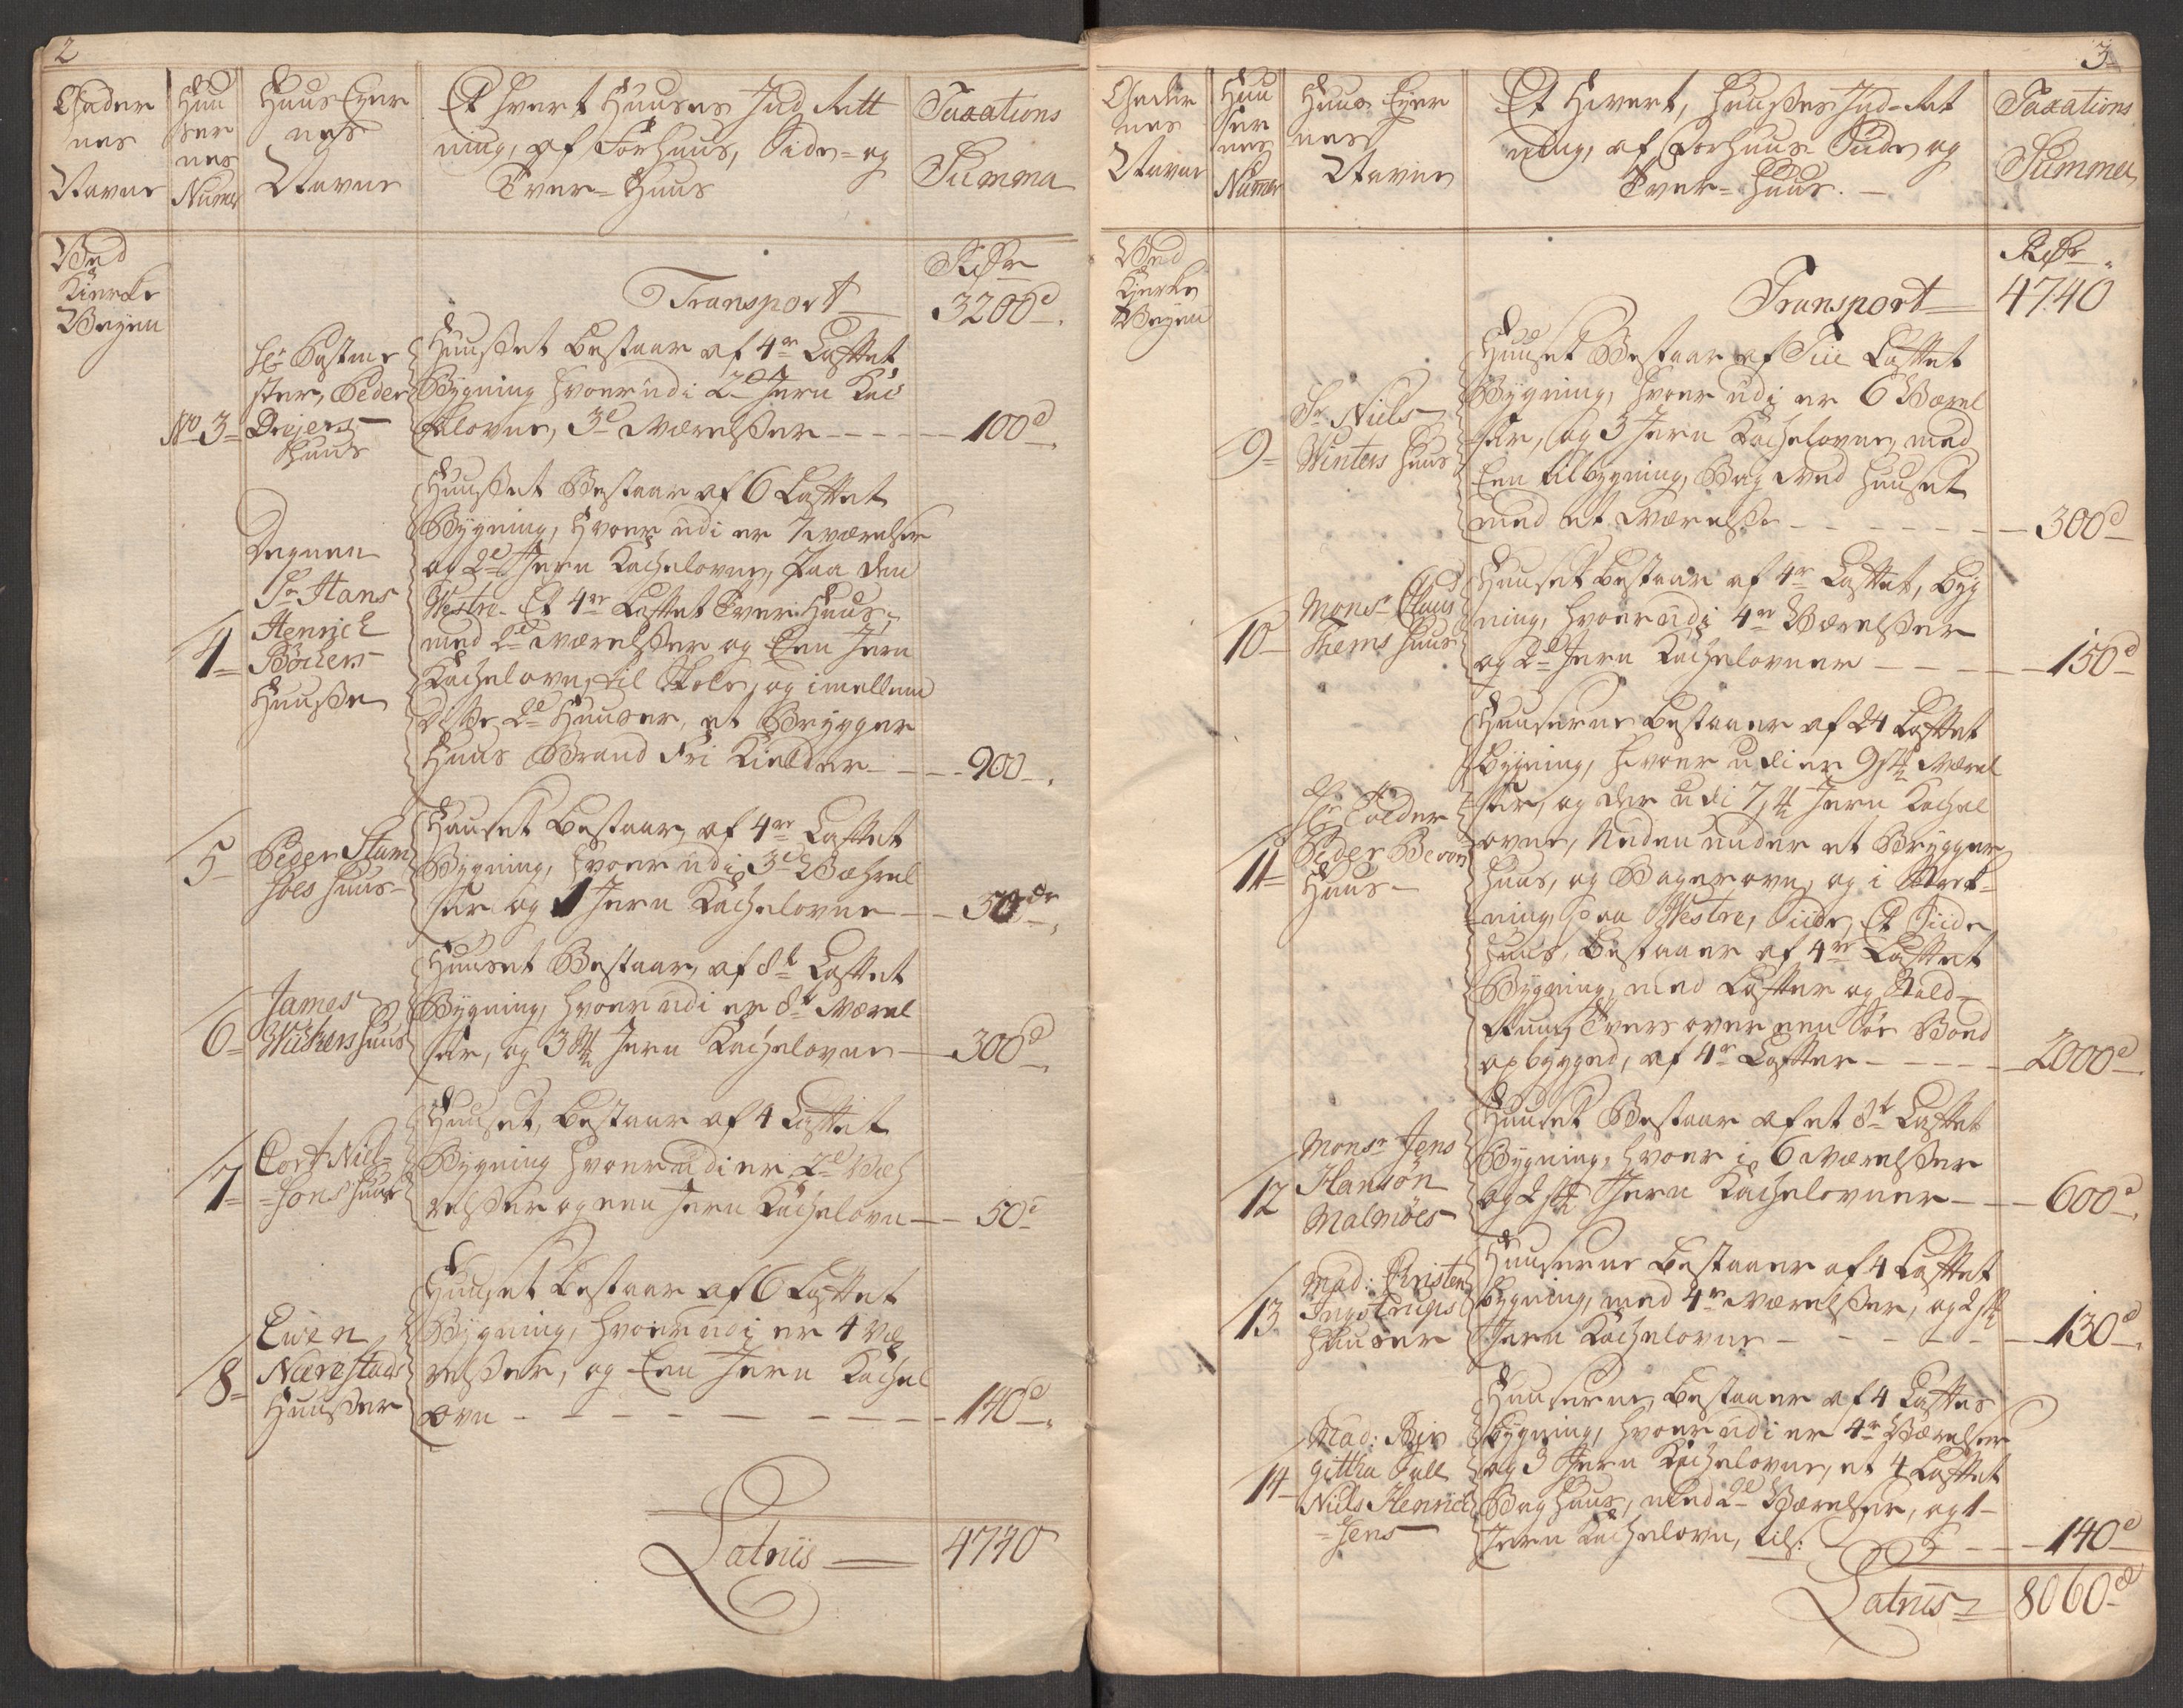 2
Gader
nes
Navne
Huu
ser
nes
Numer
Huus Eyer
nes
Navne
Et hvert Huuses Ind Rett
ning, af Forhuus, Side- og
Tver- Huus
Taxations
Summa
Ved
Kiercke
Veyen
Rdr
Transport 3200d
No 3
Hr Postme
ster, Peder
Drejers
Huus
Huusset bestaar af 4re Lofttet
Bygning hvorudi 2de Jern Kac
kelovne, 3de Værelsser - - - 100d
4
Degnen
Sr Hans
Henrich
Böckers
Huusse
Huusset Bestaar af 6 Lofttet
Bygning, hvorudi er 7 værelser
og 2de Jern Kachelovne, Paa den
Westre- Et 4re Lofttet Tver Huus,
med 2de værelsser og Een Jern
Kachelovn, til Skole, og imellem
disse 2de Huuser, et Brygger
Huus Brand Fri Kielder - - - 900
5
Peder Stam
hoes huus
Huuset Bestaar, af 4re Lofttet
Bygning, hvorudi 3de Væhrel
ser og 1 Jern Kachelovne - - 50dr
6
James
Wickers huus
Huuset Bestaar, af 8te Lofttet
Bygning, hvorudi er 8te Værel
ser, og 3 st Jern Kachelovne - 300d
7
Cort Niel-
-sons huus
Huuset, bestaar af 4 Lofttet
Bygning hvorudi er 2de Væh
relsser og een Jern Kachelovn - - 50d
8
Ewen
Nærestads
Huusser
Huuset bestaar af 6 Lofttet
Bygning, hvorudi er 4 væ
relsser, og Een Jern Kachel
ovn - - - - - - - 140d
Latriis 4740
3
Gader
nes
Navne
Huu
ser
nes
Numer
Huus Eyer
nes
Navne
Et Hvert, Huusses Ind-Ret
ning, af Forhuus Side og
Tver- Huus.
Taxations
Summa
Ved
Kjerke
Veyen
Rdr
Transport 4740
9
Sr Niels
Winters huus
Huuset Bestaar af Tiie Lofttet
Bygning, hvorudi er 6 Værel
ser, og 3 Jern Kachelovne, med
Een tilbygning, Bag ved huuset
med et Værelsse - - - - - 300d
10
Monsr Claus
Thems huus
Huuset bestaar af 4re Lofttet, byg
ning, hvorudi 4re Værelsser
og 2de Jern Kachelovner - - - 150d
11
Hr Tolder
Peder
Huus
Huuserne bestaaer af 24 Lofttet
Bygning, hvorudi er 9 st Værel
ser, og der udi 7 st Jern Kachel
ovne, Neden under et Brygger
huus, og Bagerovn, og i Ret-
ning, paa Westre, Siide, Et Siide
huus, bestaaer af 4re Lofttet
Bygning, med Lofter og Stald-
Rum, Tvers over een Söe Boed
opbygged, af 4re Lofter - - - 2000d
12
Monsr Jens
Hansön
Malmöes
Huuset Bestaar af et 8te Lofttet
Bygning, hvori 6 Værelsser
og 2 st Jern Kachelovner - - 600d
13
Mad: Christen
Ingstrups
huuser
Huuserne bestaaer af 4 Lofttet
bygning, med 4re værelsser, og 2 st
Jern Kachelovne - - - - - 130d
14
Mad: Bir
githa Sall
Niels Henrich
-sens
Huuserne bestaaer af 4 Lofttes
bygning, hvorudi er 4re Værelser
og 3 Jern Kachelovne, et 4 Lofttet
Bag huus, med 2de Værelser, og 1
Jern Kachelovn, til: - - - 140d
Latriis 8060d